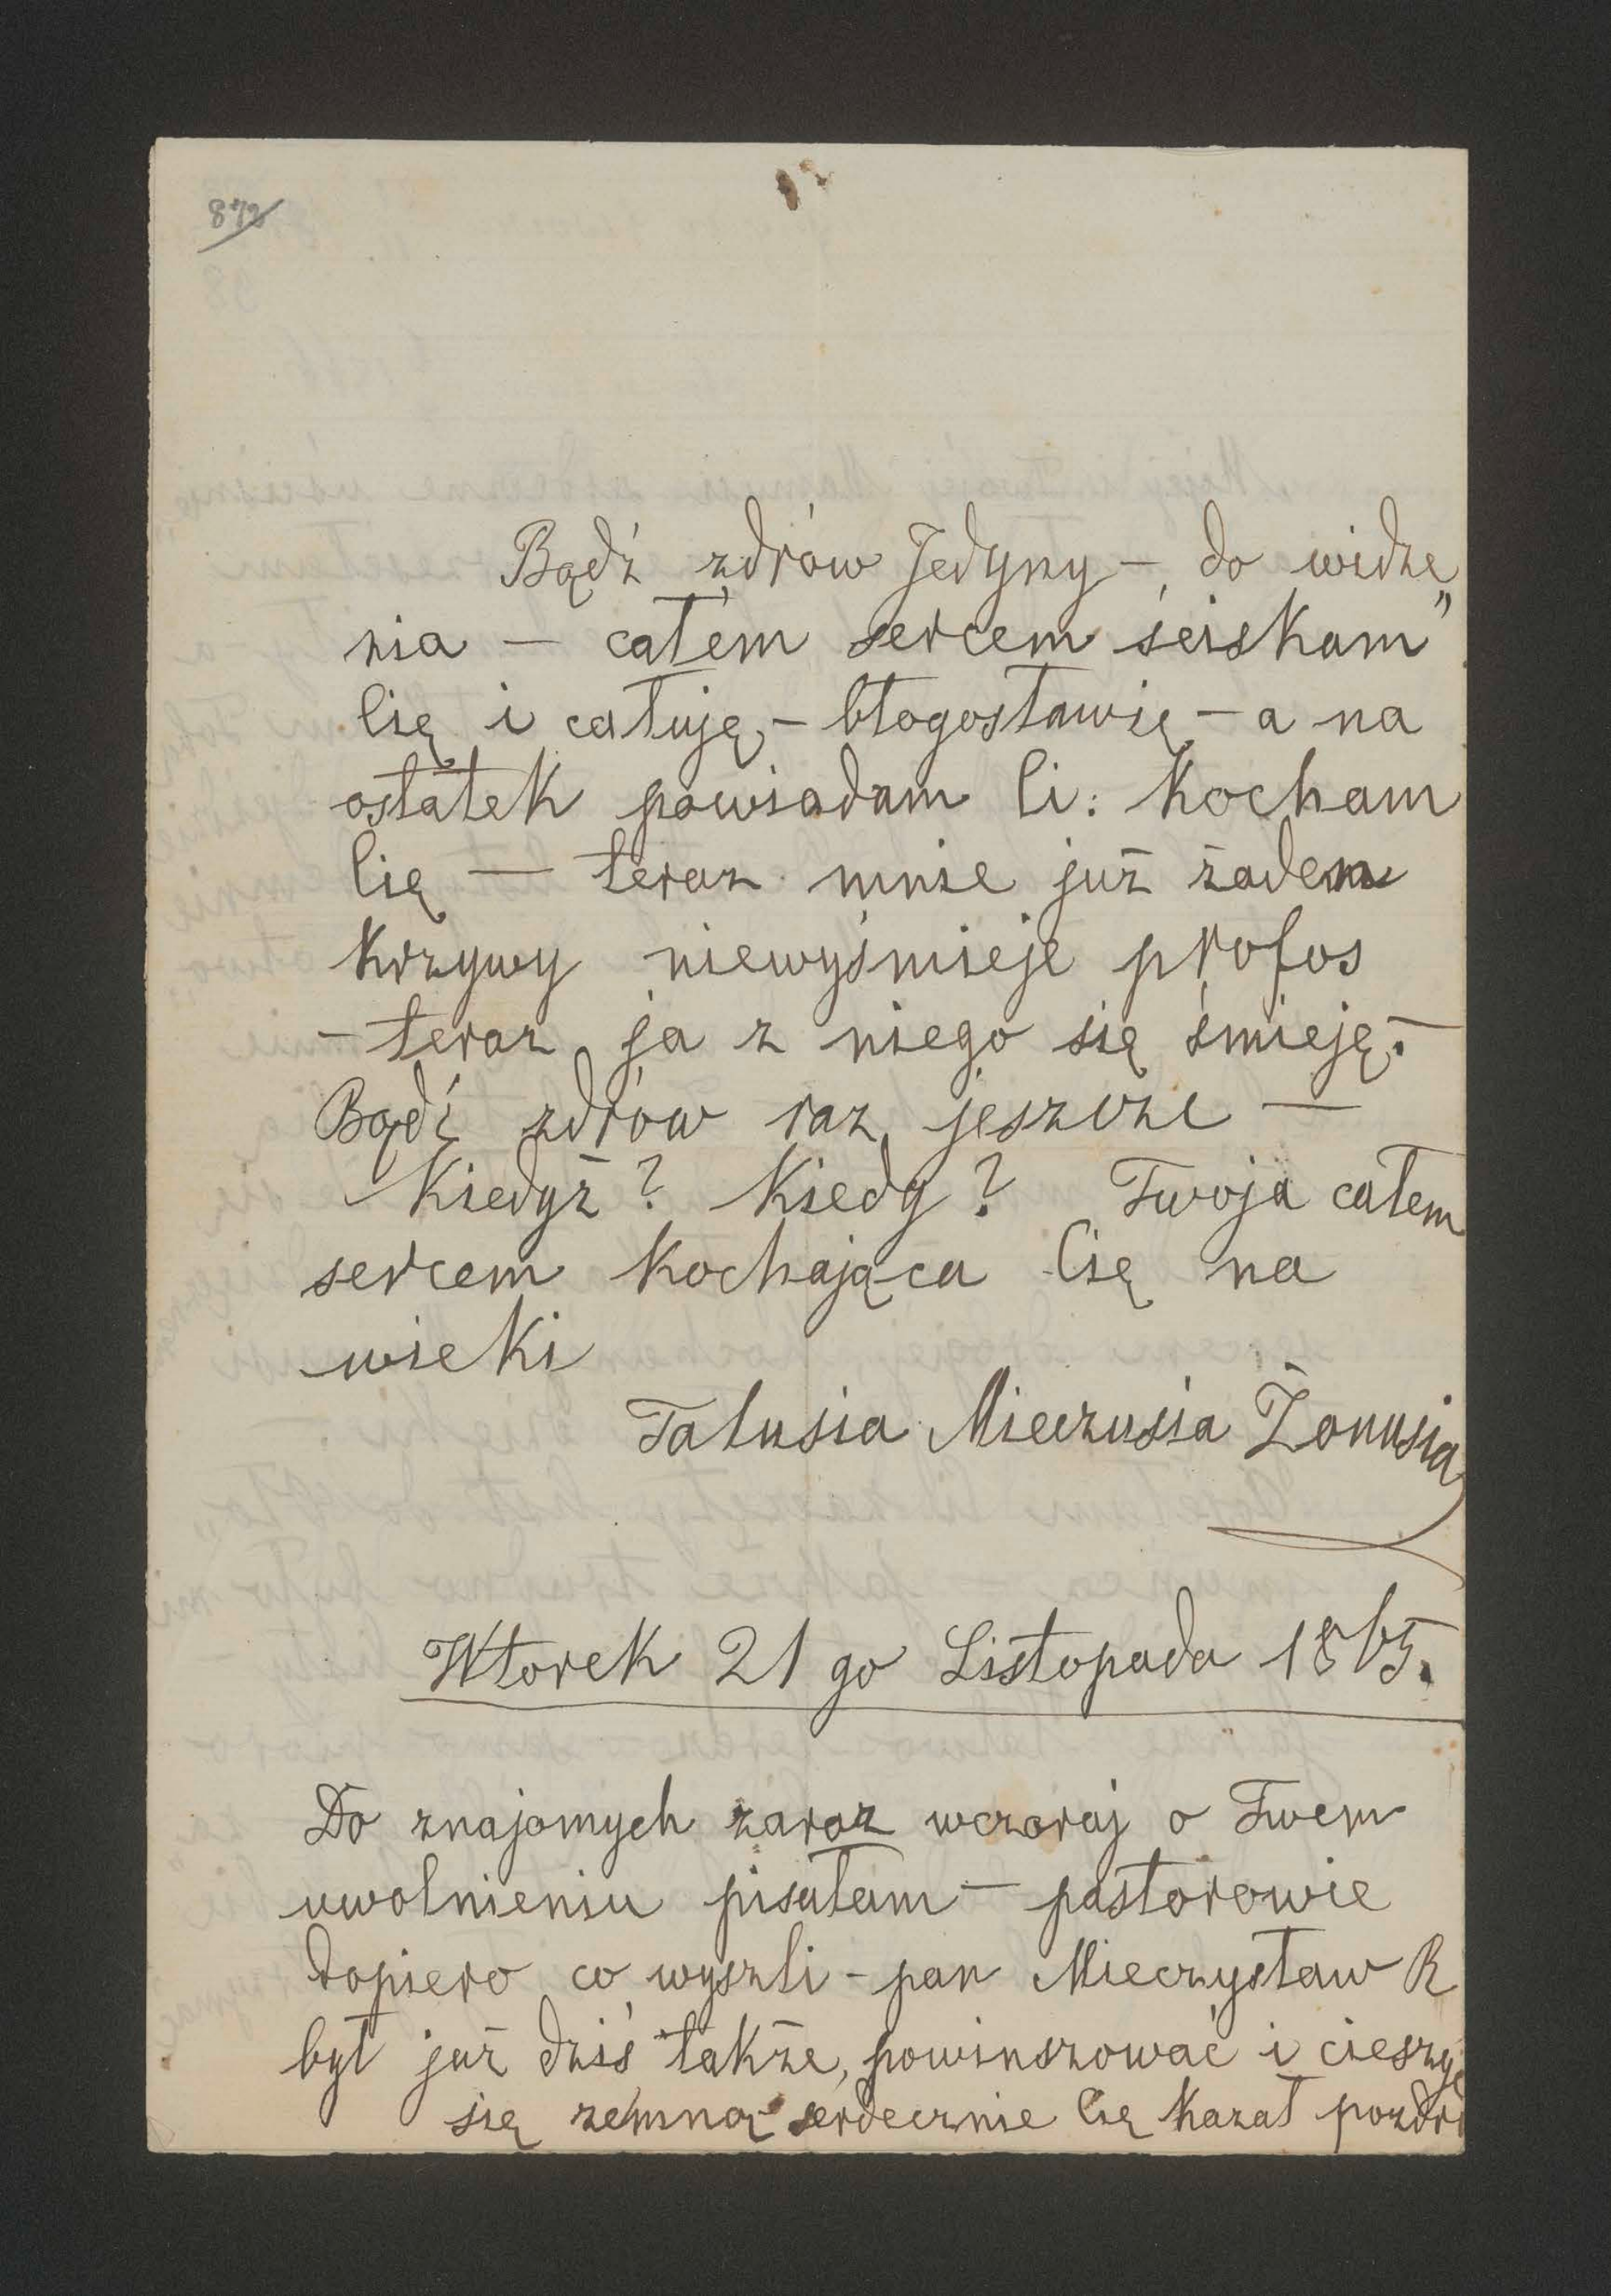 872
Bądź zdrów Jedyny – do widze„
nia – całem sercem ściskam
Cię i całuję, – błogosławię – a na
ostatek powiadam Ci: Kocham
Cię — teraz mnie już żaden
Krzywy niewyśmieje profos
– teraz ja z niego się śmieję. –
Bądź zdrów raz jeszcze —
Kiedyż? Kiedy? Twoja całem
sercem Kochająca Cię na
wieki
Tatusia Mieczusia Żonusia
Wtorek 21 go Listopada 1865.
Do znajomych zaraz wczoraj o Twem
uwolnieniu pisałam – pastorowie
dopiero co wyszli – pan Mieczysław R
był już dziś także, powinszować i cieszyć
się zemną serdecznie Cię Kazał pozdr